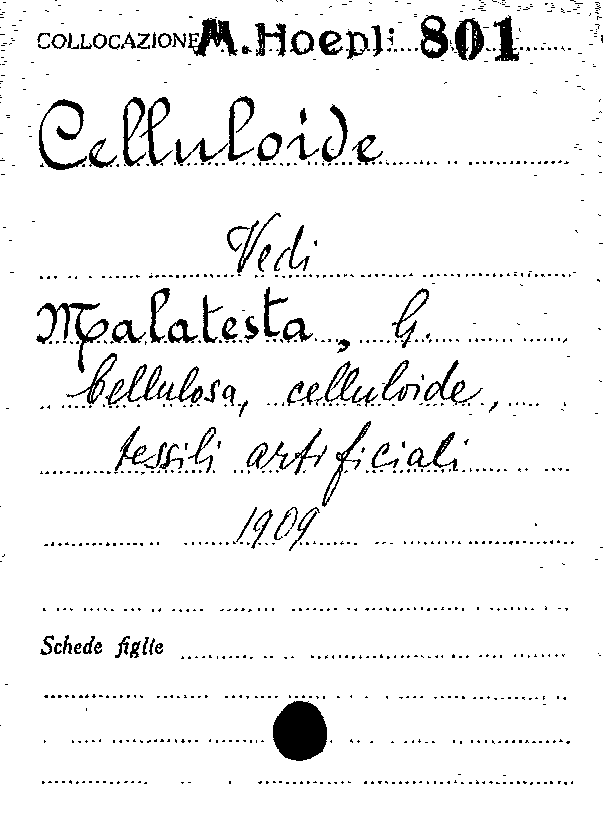 COLLOCAZIONE M. Hoepli 801
Celluloide
Vedi
Malatesta, G.
Cellulosa, celluloide,
tessili artificiali
1909
Schede figlie